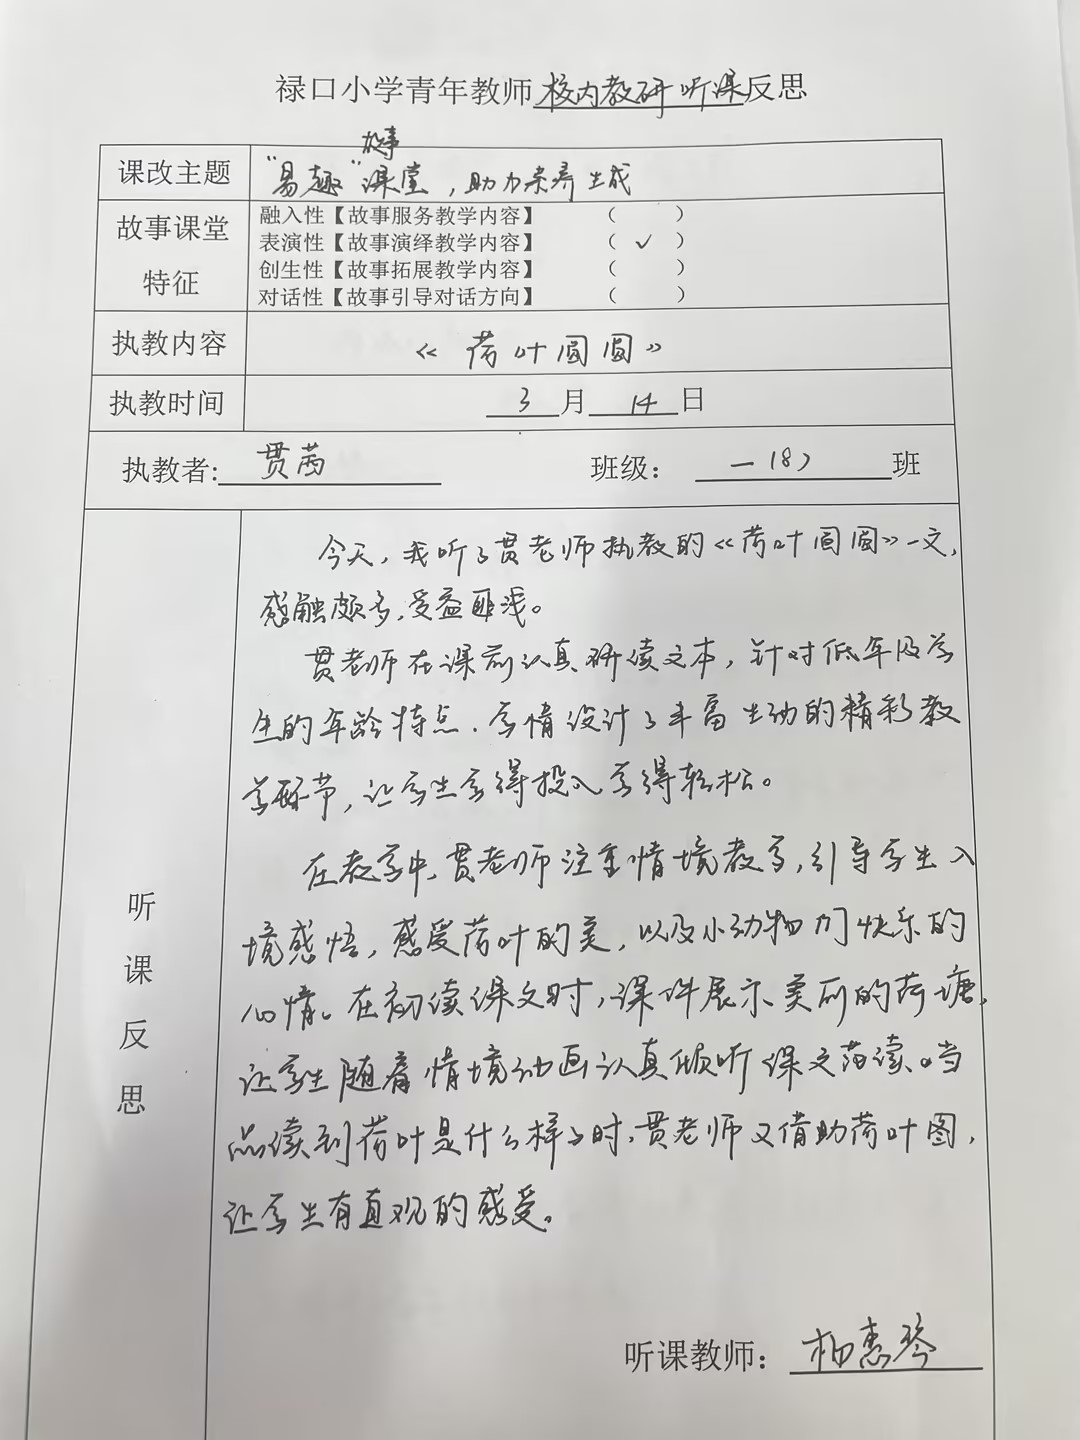 禄口小学青年教师校内教研听课反思
故事
课改主题 “易趣”课堂，助力素养生成
故事课堂特征
融入性【故事服务教学内容】 （ ）
表演性【故事演绎教学内容】 （ ✓ ）
创生性【故事拓展教学内容】 （ ）
对话性【故事引导对话方向】 （ ）
执教内容 《荷叶圆圆》
执教时间 3月14日
执教者：贯茜 班级：一（8）班
听课反思
今天，我听了贯老师执教的《荷叶圆圆》一文，
感触颇多，受益匪浅。
贯老师在课前认真研读文本，针对低年级学
生的年龄特点、学情设计了丰富生动的精彩教
学环节，让学生学得投入学得轻松。
在教学中，贯老师注重情境教学，引导学生入
境感悟，感受荷叶的美，以及小动物们快乐的
心情。在初读课文时，课件展示美丽的荷塘，
让学生随着情境动画认真倾听课文范读。当
品读到荷叶是什么样子时，贯老师又借助荷叶图，
让学生有直观的感受。
听课教师：柏惠琴